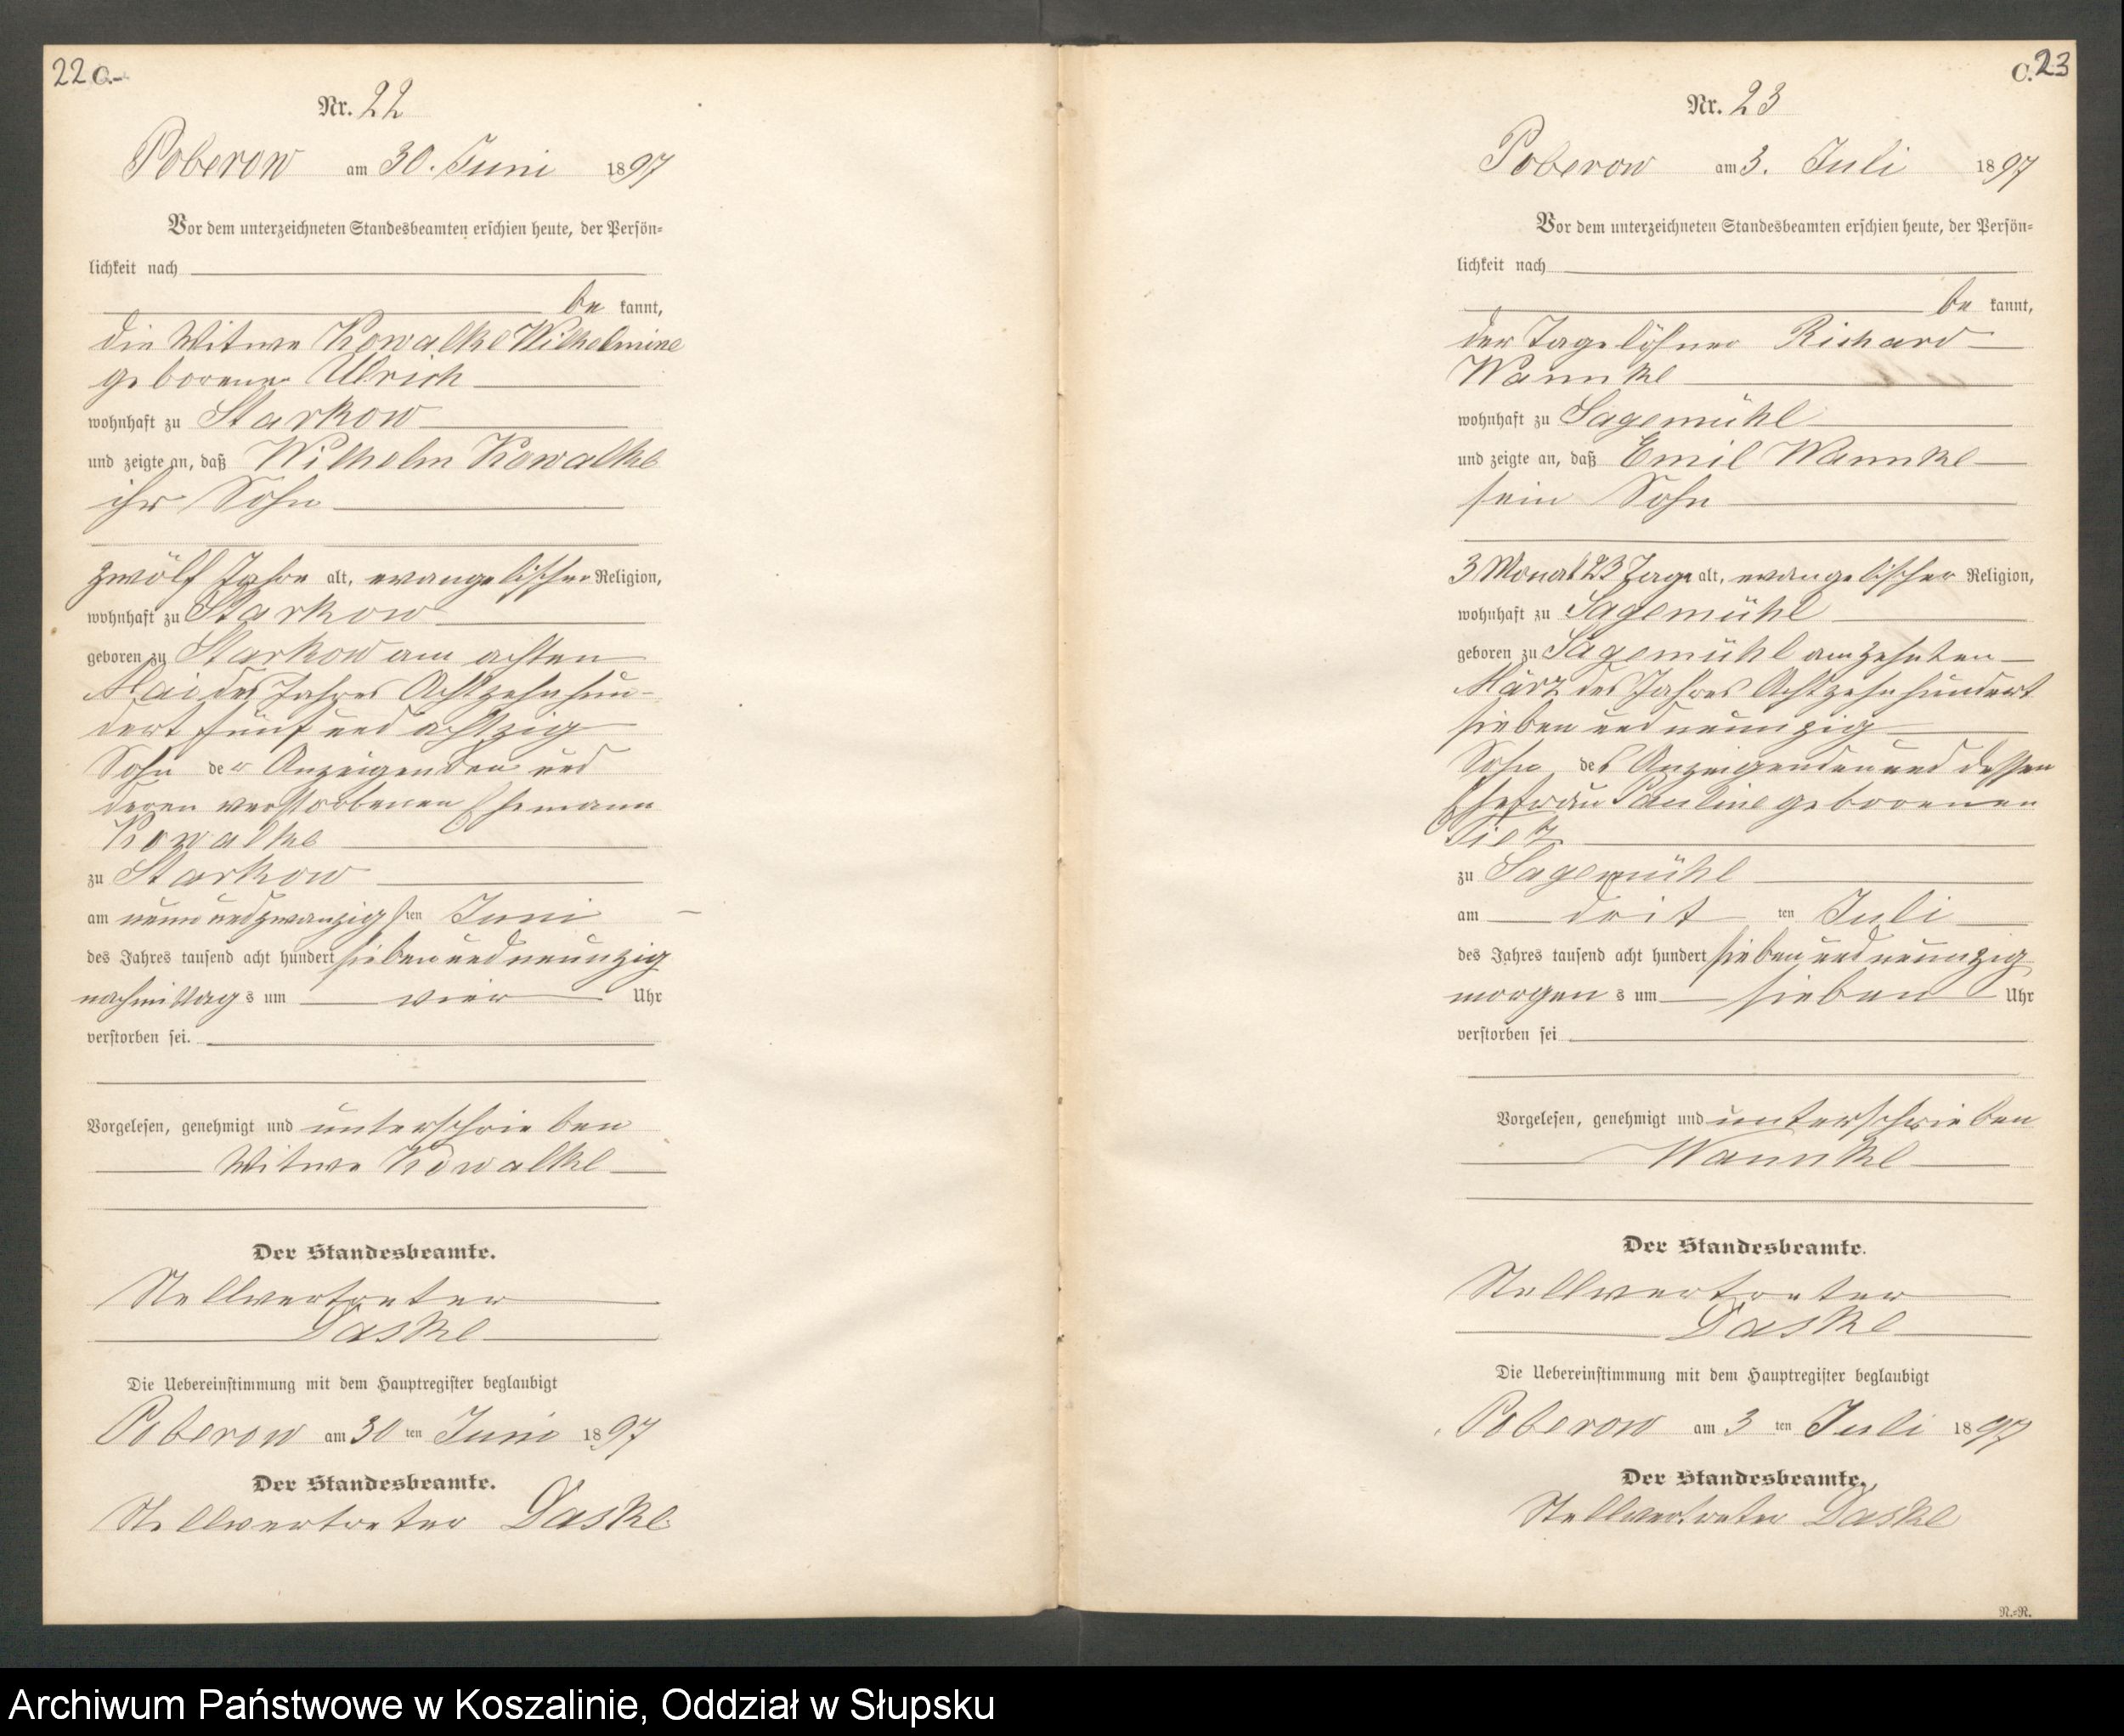 22 C.
Nr. 22
Poberow am 30. Juni 1897
Vor dem unterzeichneten Standesbeamten erschien heute, der Persön-
lichkeit nach
be kannt,
die Witwe Kowalke Wilhelmine
geborene Ulrich
wohnhaft zu Starkow
und zeigte an, daß Wilhelm Kowalke
ihr Sohn
zwölf Jahre alt, evangelischer Religion,
wohnhaft zu Starkow
geboren zu Starkow am achten
Mai des Jahres Achtzehnhun-
dert fünf und achtzig
Sohn der Anzeigenden und
deren verstorbenen Ehemann
Kowalke
zu Starkow
am neunundzwanzigsten Juni
des Jahres tausend acht hundert siebenundneunzig
nachmittags um vier Uhr
verstorben sei.
Vorgelesen, genehmigt und unterschrieben
Witwe Kowalke
Der Standesbeamte.
Stellvertreter
Daske
Die Uebereinstimmung mit dem Hauptregister beglaubigt
Poberow am 30 ten Juni 1897
Der Standesbeamte.
Stellvertreter Daske
C. 23
Nr. 23
Poberow am 3. Juli 1897
Vor dem unterzeichneten Standesbeamten erschien heute, der Persön-
lichkeit nach
be kannt,
der Tagelöhner Richard
Wannke
wohnhaft zu Sagemühl
und zeigte an, daß Emil Wannke
sein Sohn
3 Monat 23 Tage alt, evangelischer Religion,
wohnhaft zu Sagemühl
geboren zu Sagemühl am zehnten
März des Jahres Achtzehnhundert
sieben und neunzig
Sohn des Anzeigenden und dessen
Ehefrau Pauline geborenen
zu Sagemühl
am dritten Juli
des Jahres tausend acht hundert siebenundneunzig
morgens um sieben Uhr
verstorben sei
Vorgelesen, genehmigt und unterschrieben
Wannke
Der Standesbeamte.
Stellvertreter
Daske
Die Uebereinstimmung mit dem Hauptregister beglaubigt
Poberow am 3 ten Juli 1897
Der Standesbeamte.
Stellvertreter Daske
N.=N.
Archiwum Państwowe w Koszalinie, Oddział w Słupsku